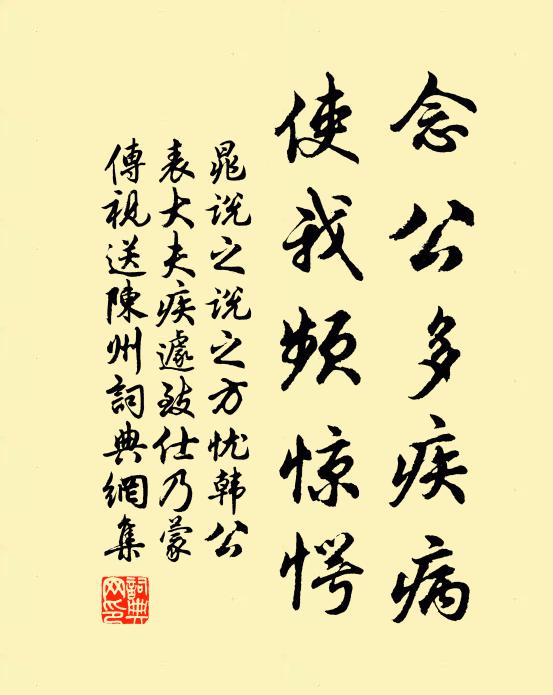 念公多疾病
使我频惊愕
晁说之说之方忧韩公
表大夫疾遽致仕乃蒙
傳視送陳州詞典網集
詞典网印